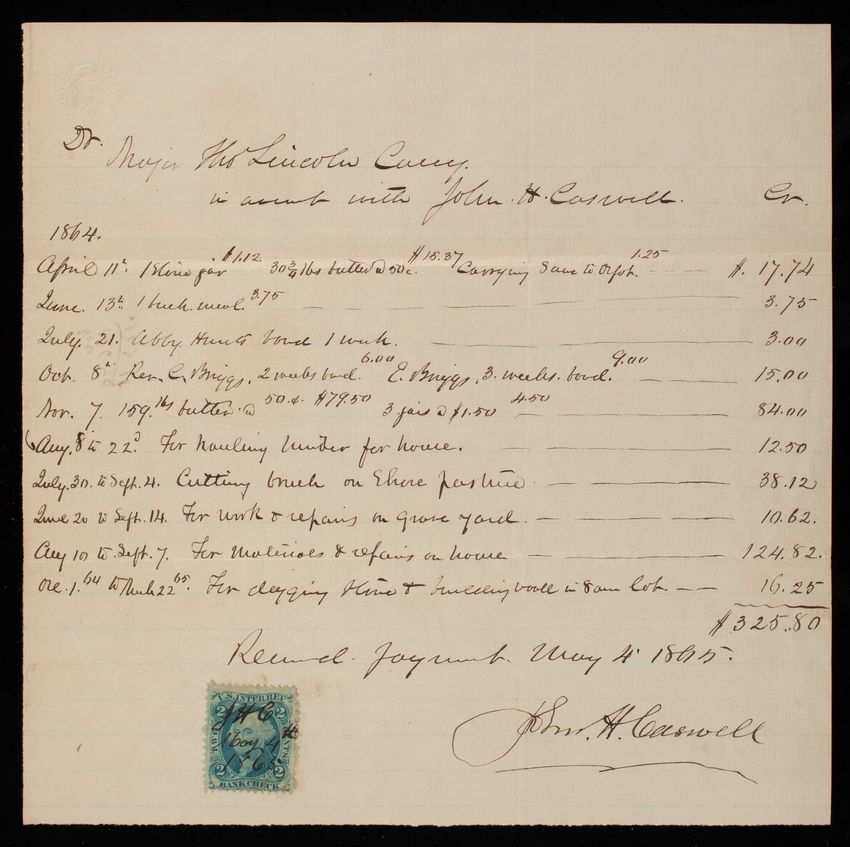 Dr. Major Thos Lincoln Casey.
in accout with John. H. Caswell. Cr.
1864.
April 11th 1 Stone jar $1.12 30 3/4 lbs butter @ 50c. $15.37 Carrying same to Depot. 1.25 $. 17.74
June. 13th 1 bush. meal. 3.75 3.75
July. 21. Abby Hunts board 1 week. 3.00
Oct. 8th Rev. C. Briggs, 2 weeks board. 6.00 E. Briggs, 3. weeks. board. 9.00 15.00
Nov. 7. 159. lbs butter. @ 50.c. $79.50 3 jars @ $1.50 4.50 84.00
Aug. 8 to 22d. For hauling lumber for house. 12.50
July. 30. to Sept. 4. Cutting brush on Shore pasture 38.12
June 20 to Sept. 14. For work & repairs on Grave yard. 10.62.
Aug 10 to Sept. 7. For materials & repairs on house 124.82.
Dec. 1. 64 to March 22 65. For digging stone & building wall in Sam lot. 16.25
$325.80
Received. payment. May 4 1865.
Jno. H. Caswell
U.S. INTER. REV.
2 2
TWO CENTS
J H C
May 4th
1865
2 2
BANK CHECK